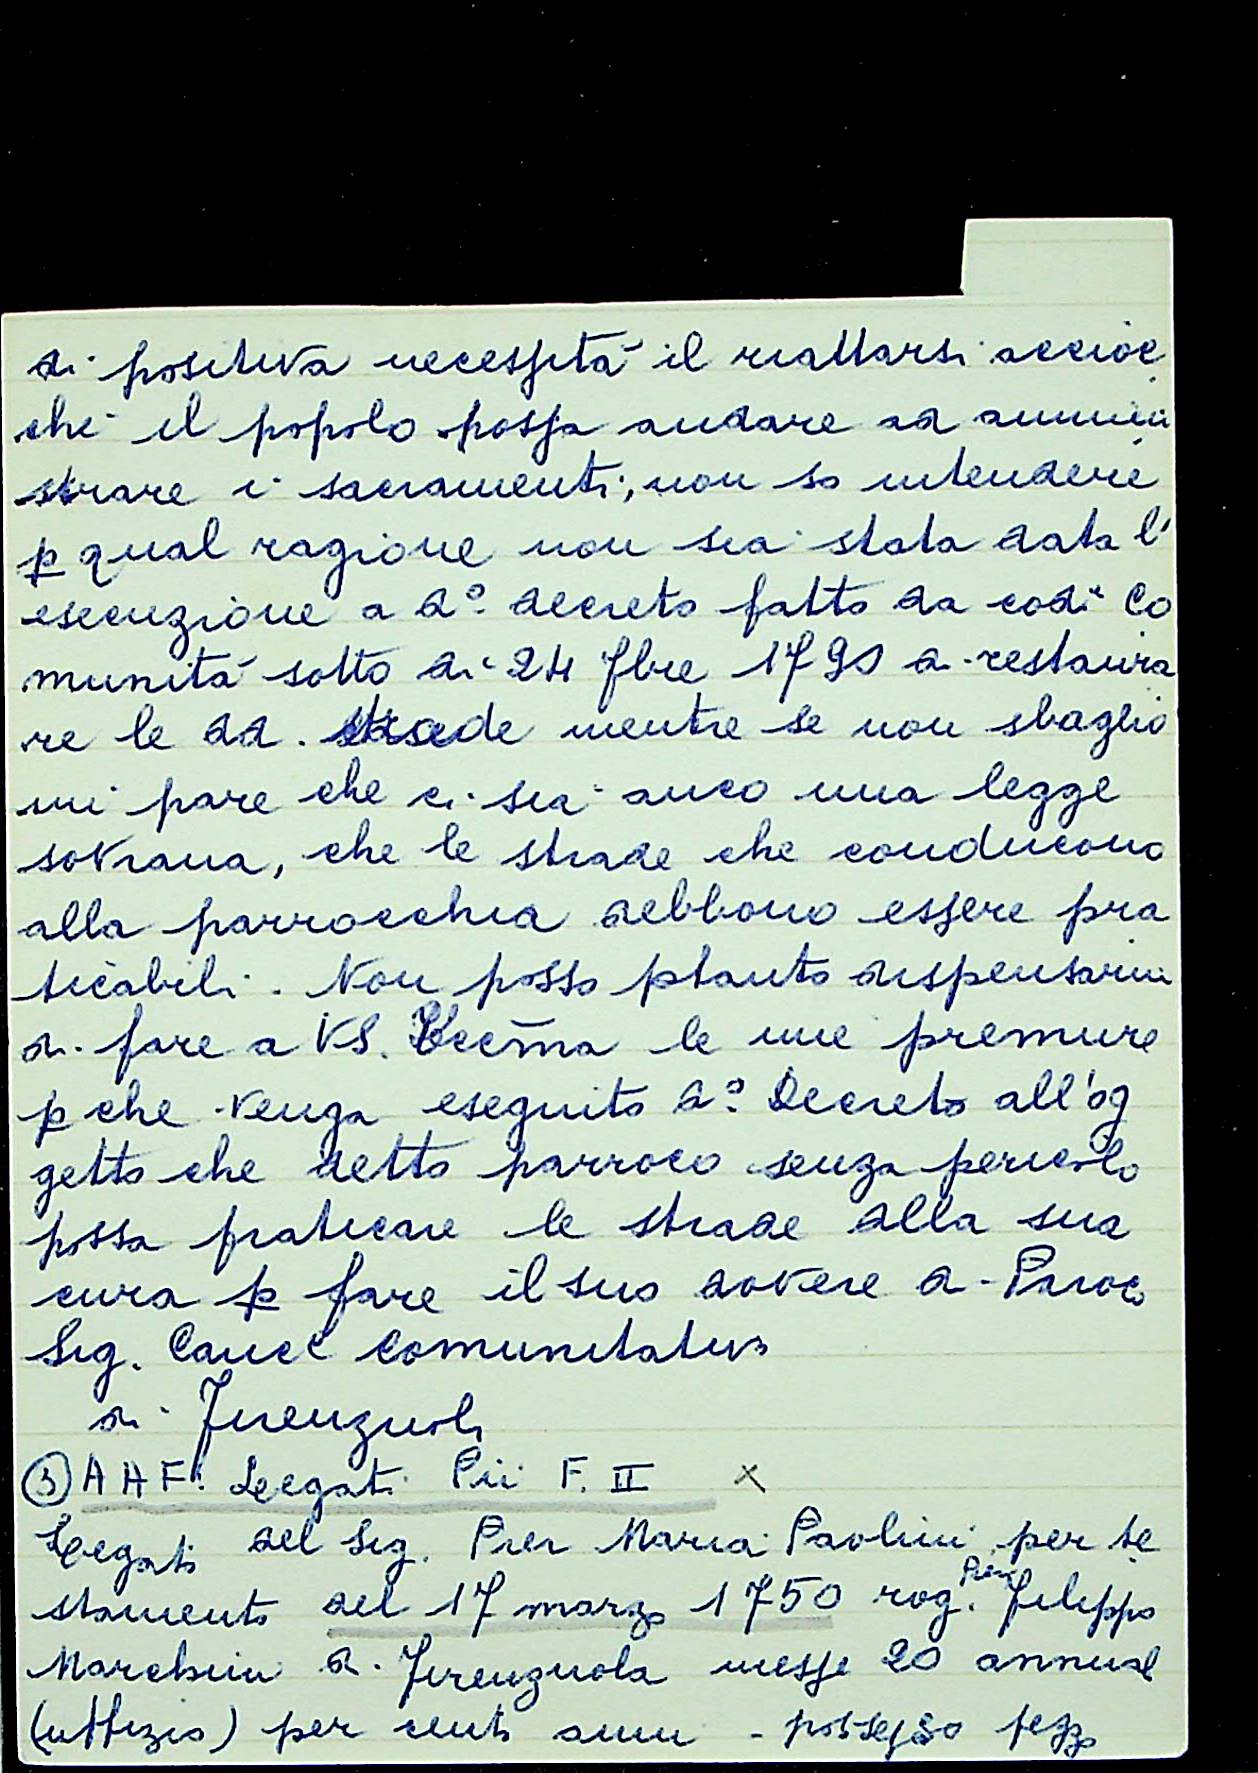 di positiva necessità il riattarsi accioc
chè il popolo possa andare ad ammini
strare i sacramenti, non so intendere
p qual ragione non sia stata data l'
esecuzione a do. decreto fatto da codª Co
munità sotto di 24 7bre 1790 di restaura
re le dd. strade mentre se non sbaglio
mi pare che ci sia anco una legge
sovrana, che le strade che conducono
alla parrocchia debbono essere pra
ticabili. Non posso ptanto dispensarmi
di fare a VS. Eccma le mie premure
p che venga eseguito do. Decreto all'og
getto che detto parroco senza pericolo
possa praticare le strade alla sua
cura p fare il suo dovere di Paroco
Sig. Canc Comunitativo
di Firenzuola
③ AHF. Legati Pii F. II x
Legato del Sig. Pier Maria Paolini per te
stamento del 17 marzo 1750 rog. Pier Filippo
Marchini di Firenzuola messe 20 annual
(uffizio) per cento anni - possesso pezzo